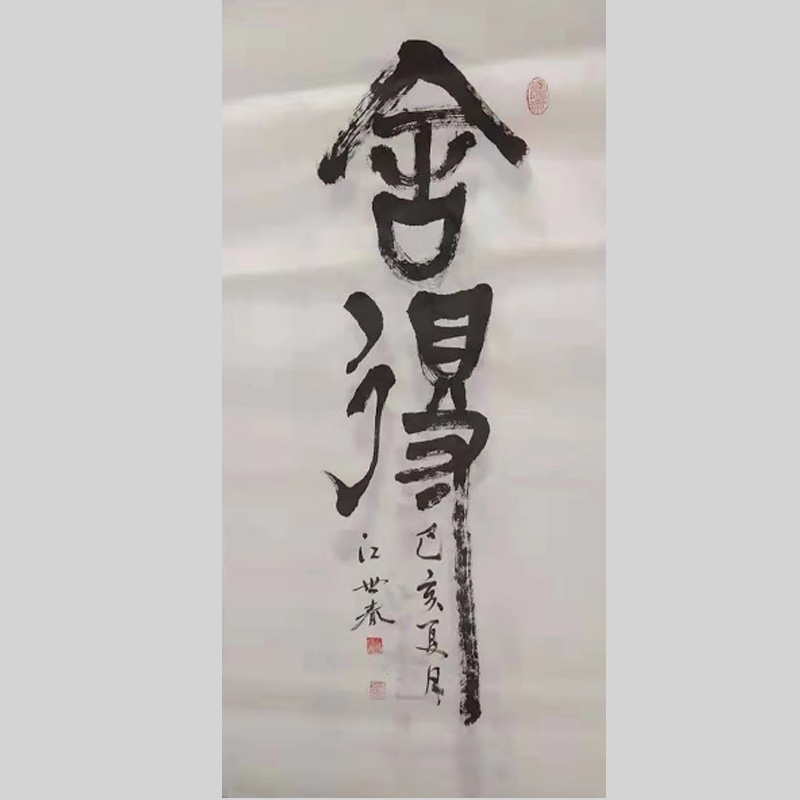 舍得
己亥夏月
江世春